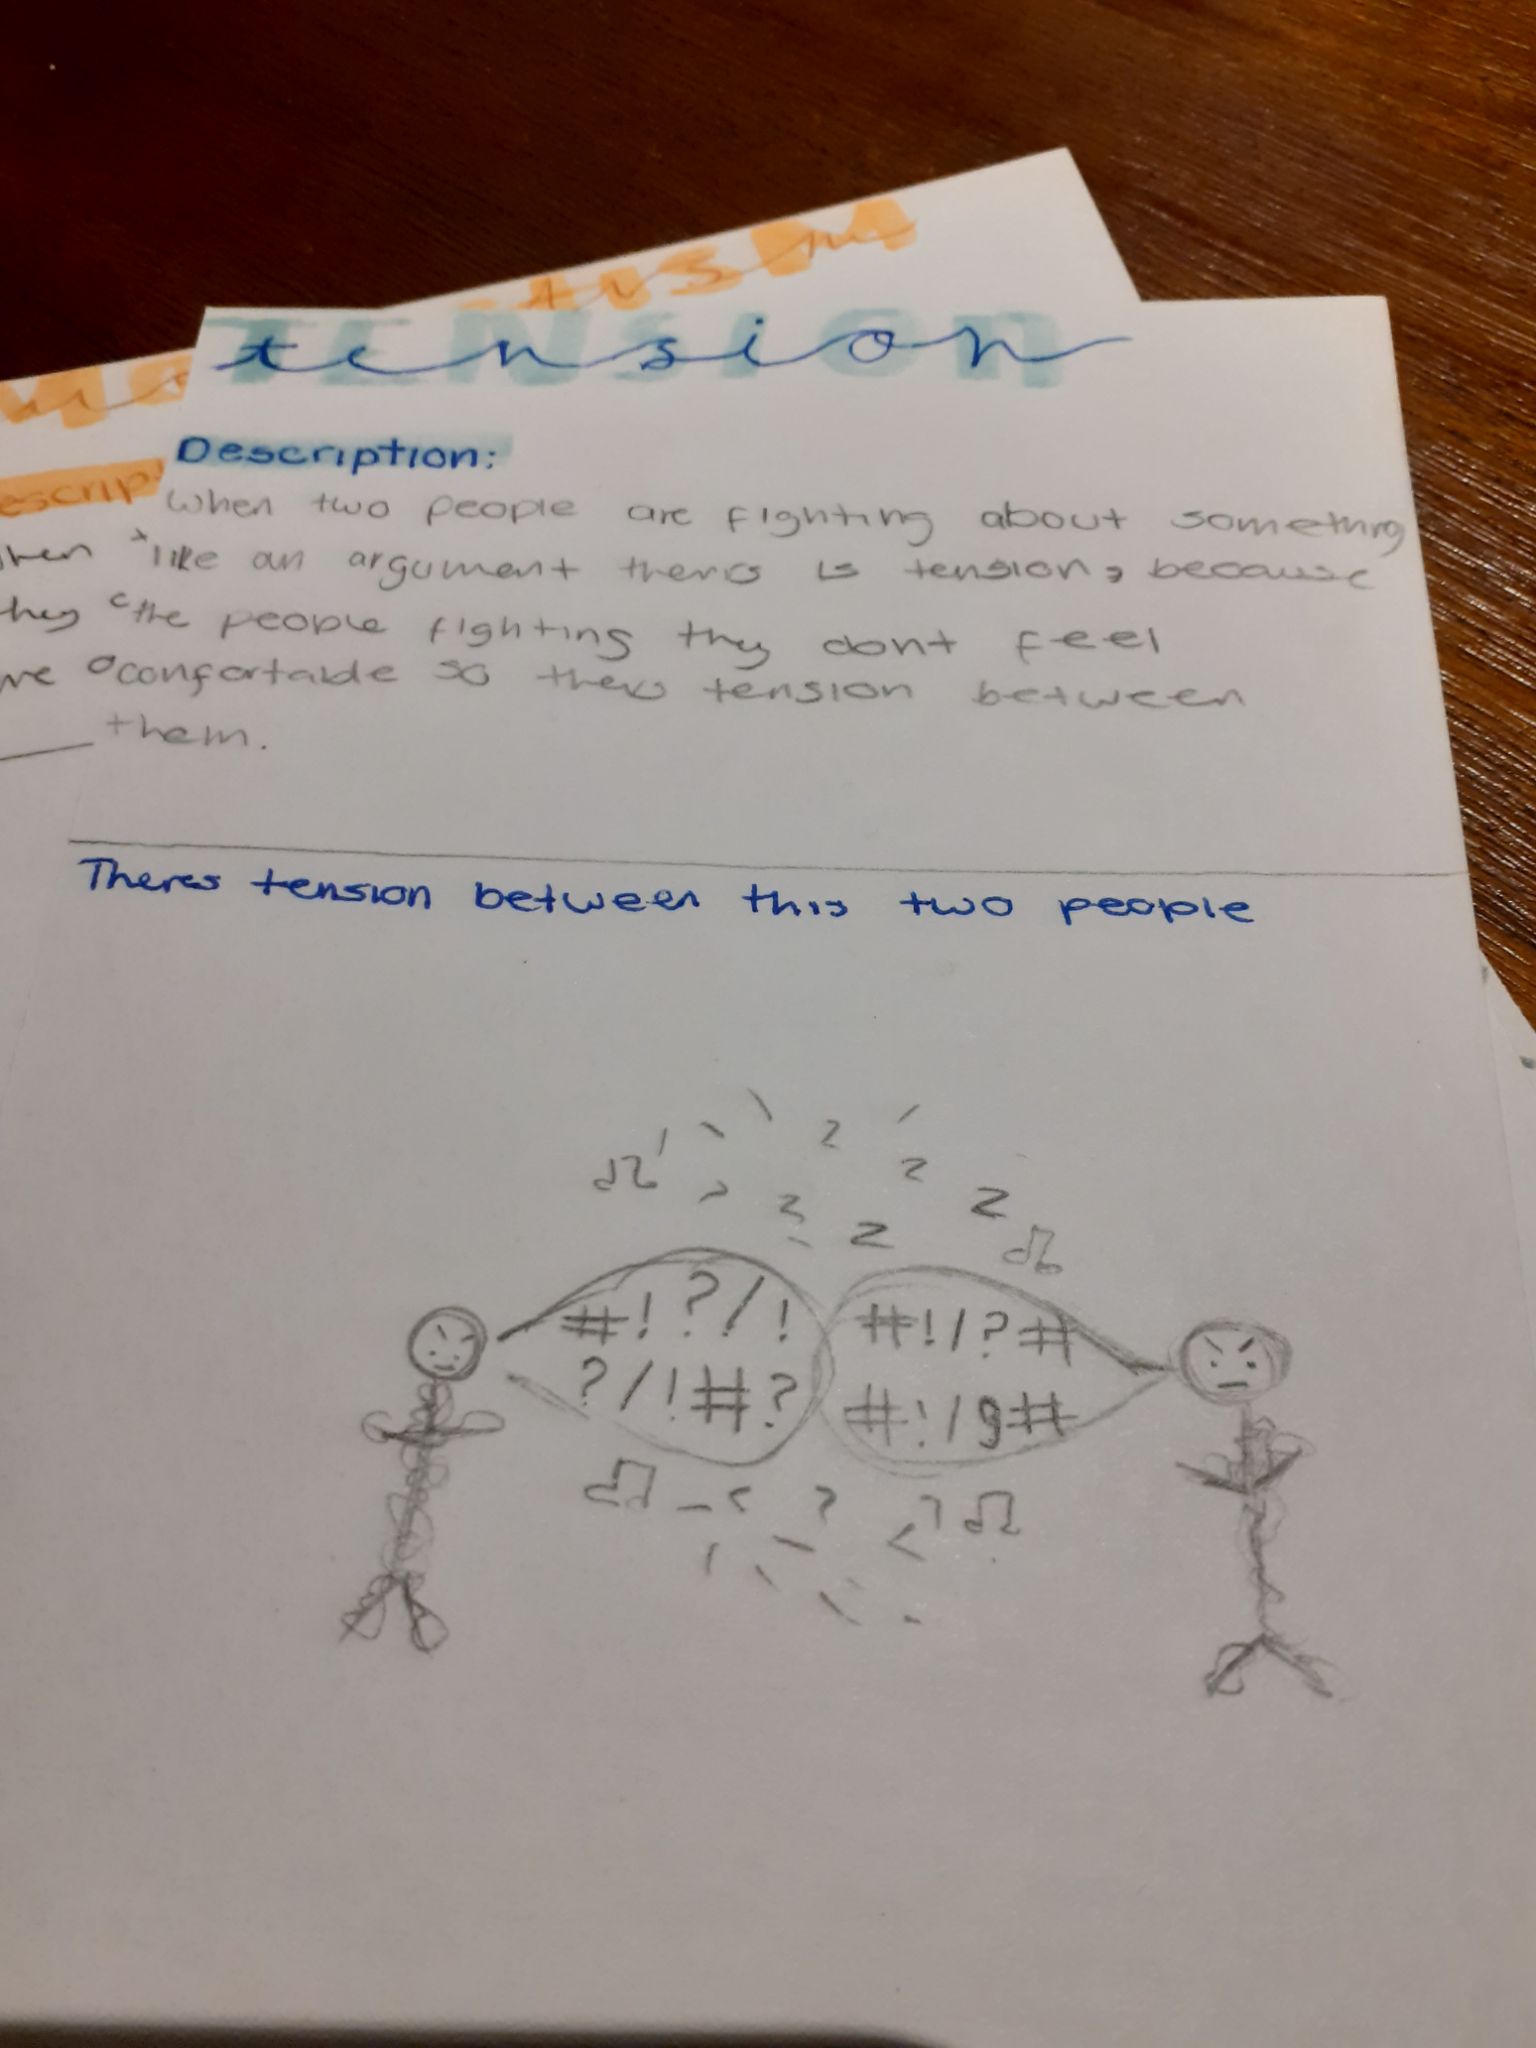 tension
Description:
When two people are fighting about something
like an argument theres is tension, because
the people fighting they dont feel
confortable so theres tension between
them.
Theres tension between this two people
#!?/!
?/!#?
#!/?#
#!/9#
z
z
z
z
z